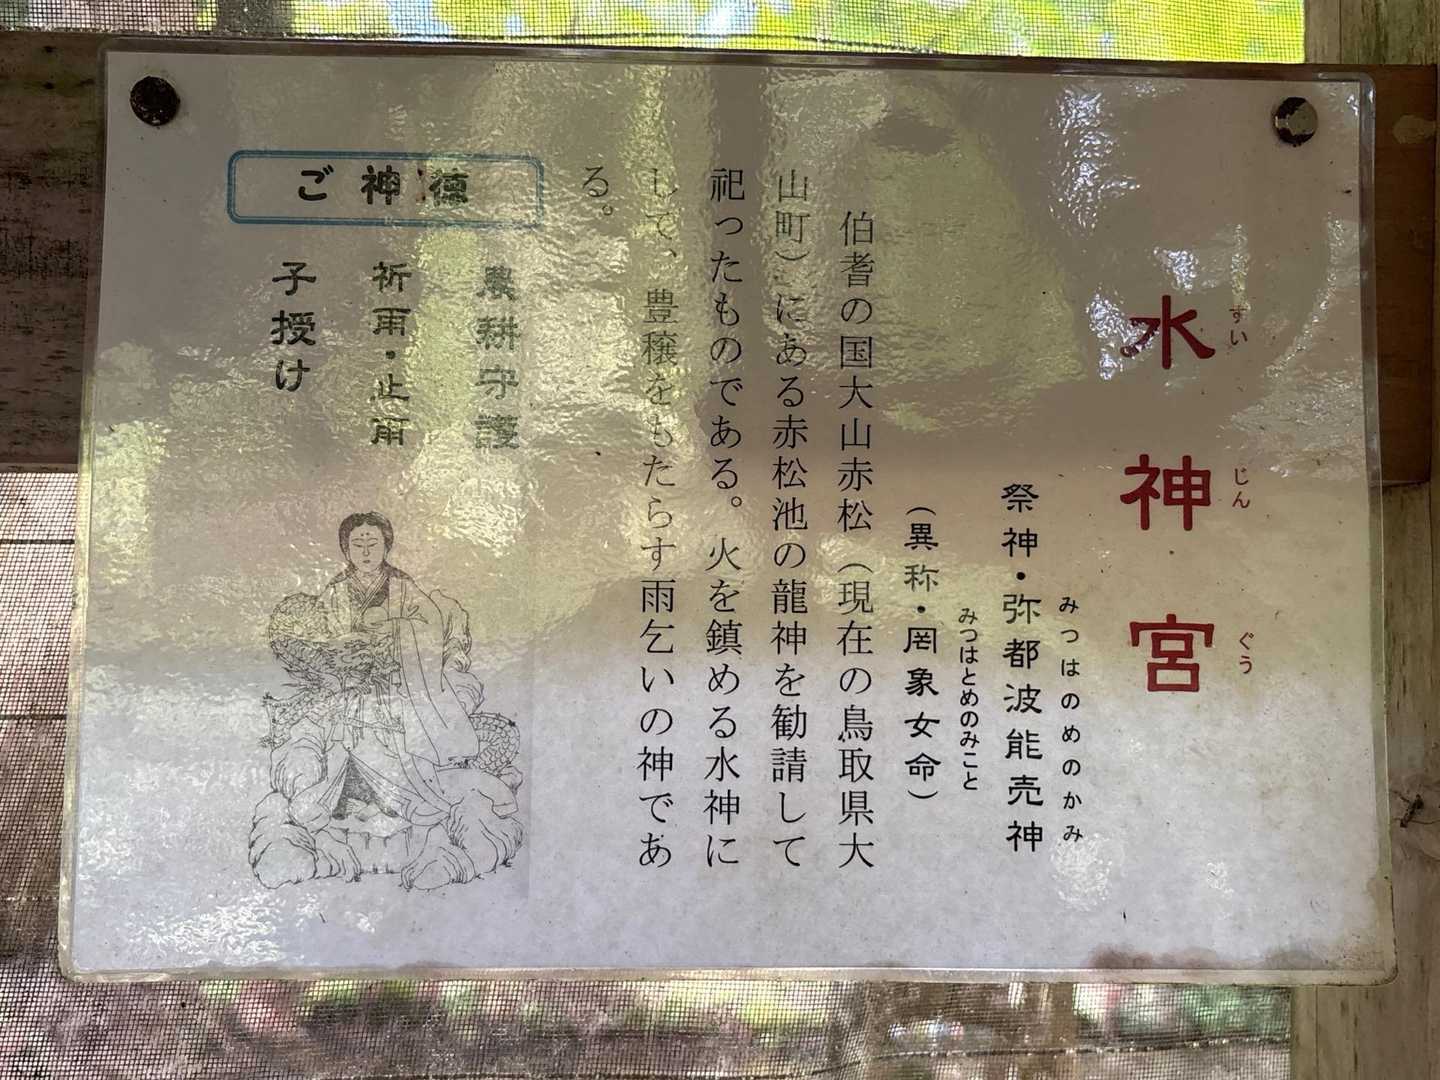 水神宮
すいじんぐう
祭神・弥都波能売神
みつはのめのかみ
（異称・罔象女命）
みつはとめのみこと
伯耆の国大山赤松（現在の鳥取県大
山町）にある赤松池の龍神を勧請して
祀ったものである。火を鎮める水神に
して、豊穣をもたらす雨乞いの神であ
る。
ご神徳
農耕守護
祈雨・止雨
子授け